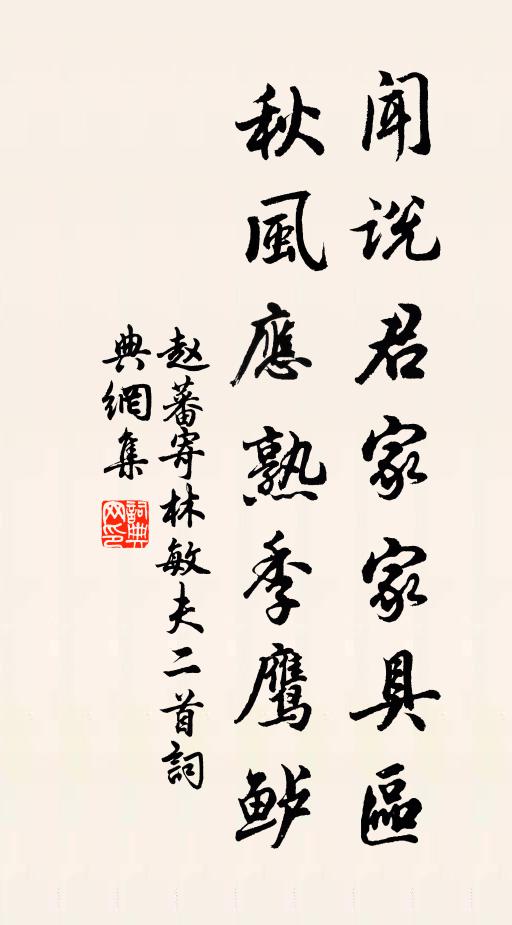 闻说君家家具區
秋風應熟季鹰鲈
赵蕃寄林敏夫二首詞
典網集
詞典网印